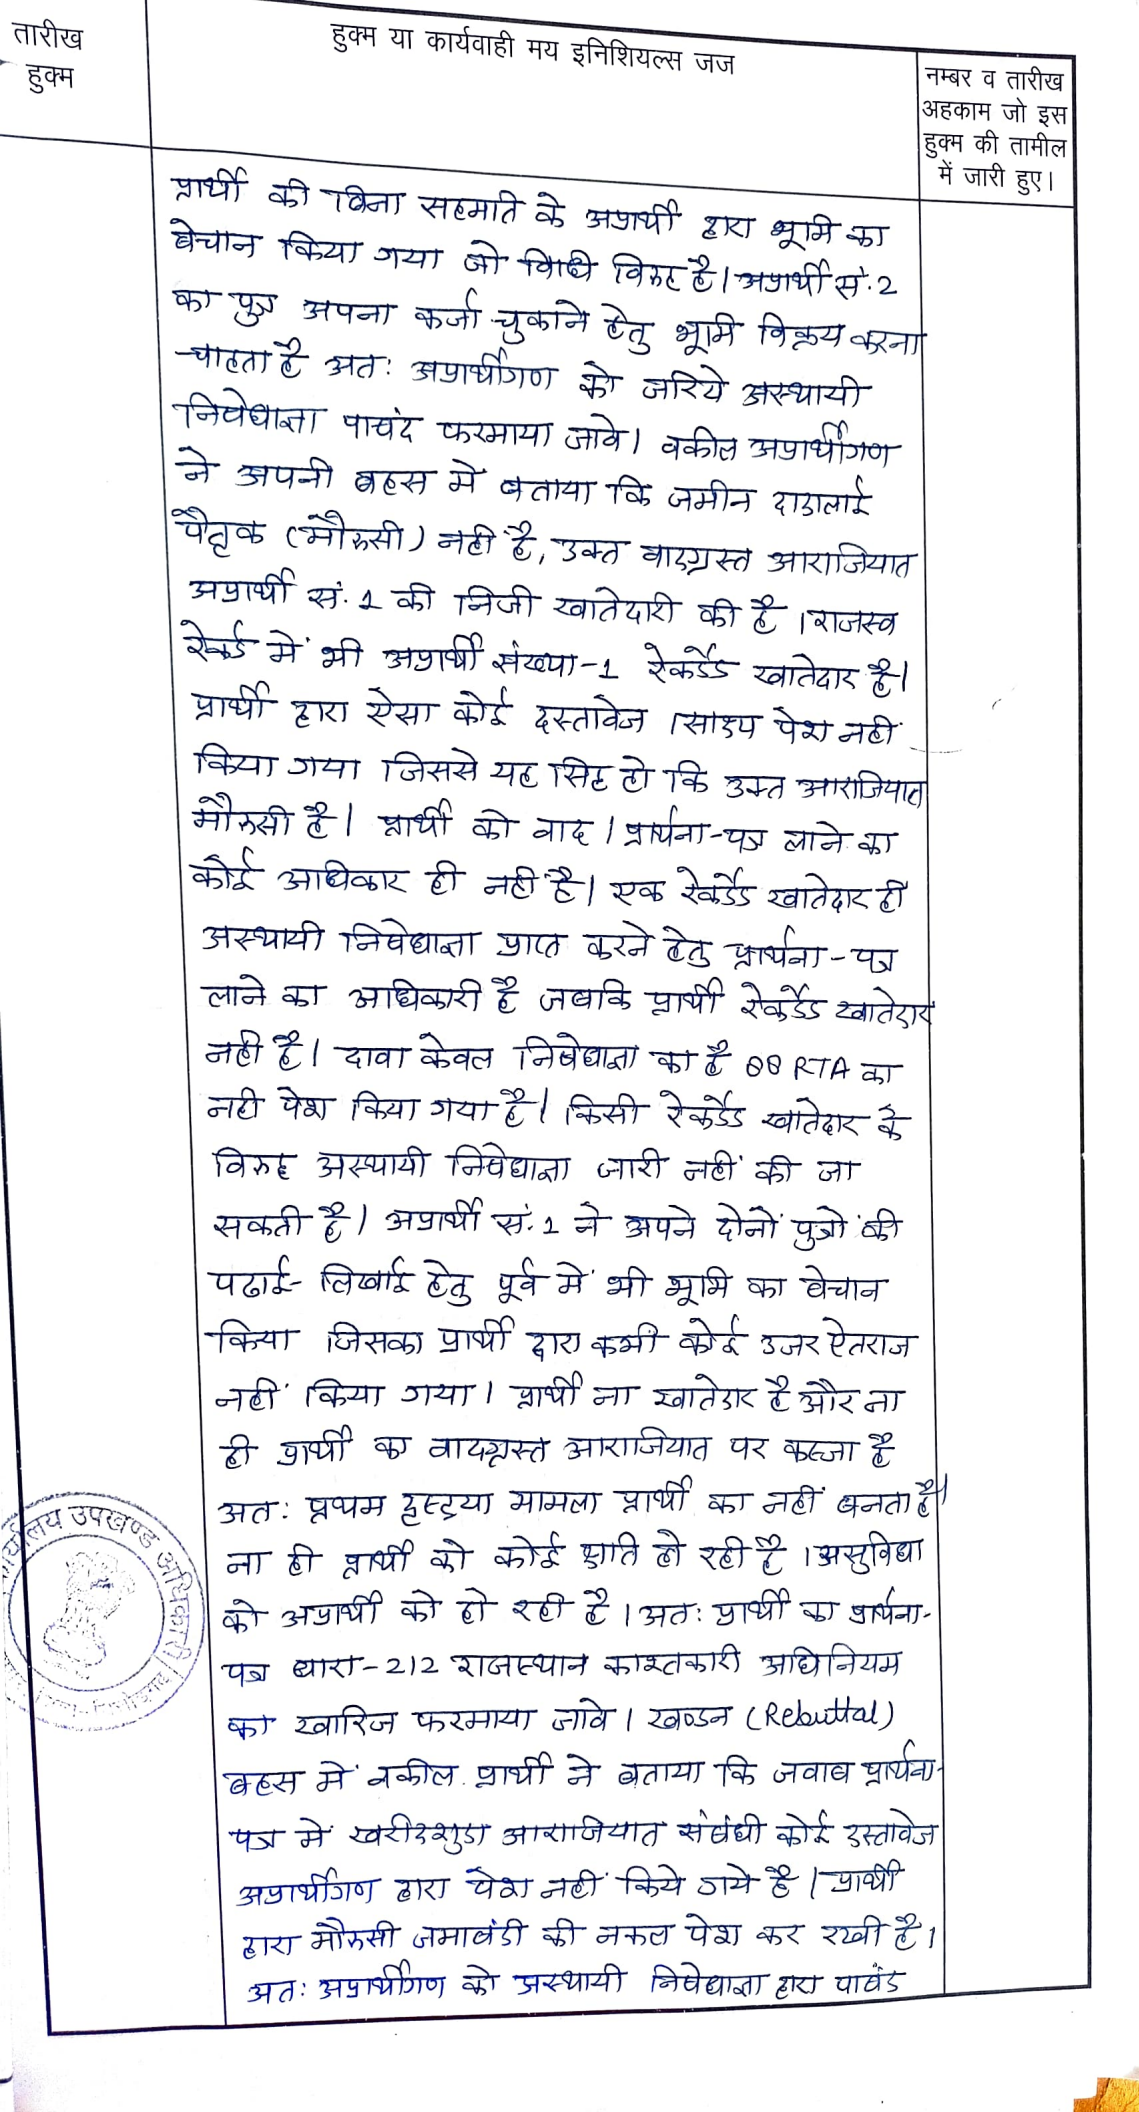 तारीख
हुक्म
हुक्म या कार्यवाही मय इनिशियल्स जज
नम्बर व तारीख
अहकाम जो इस
हुक्म की तामील
में जारी हुए।
प्रार्थी की बिना सहमति के अप्रार्थी द्वारा भूमि का
बेचान किया गया जो विधि विरुद्ध है। अप्रार्थी सं. 2
का पुत्र अपना कर्जा चुकाने हेतु भूमि विक्रय करना
चाहता है अतः अप्रार्थीगण को जरिये अस्थायी
निषेधाज्ञा पाबंद फरमाया जावे। वकील अप्रार्थीगण
ने अपनी बहस में बताया कि जमीन दादालाई
पैतृक (मौरुसी) नहीं है, उक्त वादग्रस्त आराजियात
अप्रार्थी सं. 1 की निजी खातेदारी की है। राजस्व
रेकर्ड में भी अप्रार्थी संख्या-1 रेकर्डेड खातेदार है।
प्रार्थी द्वारा ऐसा कोई दस्तावेज /साक्ष्य पेश नहीं
किया गया जिससे यह सिद्ध हो कि उक्त आराजियात
मौरुसी है। प्रार्थी को वाद / प्रार्थना-पत्र लाने का
कोई अधिकार ही नहीं है। एक रेकर्डेड खातेदार ही
अस्थायी निषेधाज्ञा प्राप्त करने हेतु प्रार्थना-पत्र
लाने का अधिकारी है जबकि प्रार्थी रेकर्डेड खातेदार
नहीं है। दावा केवल निषेधाज्ञा का है 88 RTA का
नहीं पेश किया गया है। किसी रेकर्डेड खातेदार के
विरुद्ध अस्थायी निषेधाज्ञा जारी नहीं की जा
सकती है। अप्रार्थी सं. 1 ने अपने दोनों पुत्रों की
पढाई-लिखाई हेतु पूर्व में भी भूमि का बेचान
किया जिसका प्रार्थी द्वारा कभी कोई उजर ऐतराज
नहीं किया गया। प्रार्थी ना खातेदार है और ना
ही प्रार्थी का वादग्रस्त आराजियात पर कब्जा है
अतः प्रथम दृष्टया मामला प्रार्थी का नहीं बनता है।
ना ही प्रार्थी को कोई क्षति हो रही है। असुविधा
को अप्रार्थी को हो रही है। अतः प्रार्थी का प्रार्थना-
पत्र धारा-212 राजस्थान काश्तकारी अधिनियम
का खारिज फरमाया जावे। खण्डन (Rebuttal)
बहस में वकील प्रार्थी ने बताया कि जवाब प्रार्थना-
पत्र में खरीदशुदा आराजियात संबंधी कोई दस्तावेज
अप्रार्थीगण द्वारा पेश नहीं किये गये है। प्रार्थी
द्वारा मौरुसी जमाबंदी की नकल पेश कर रखी है।
अतः अप्रार्थीगण को अस्थायी निषेधाज्ञा द्वारा पाबंद
कार्यालय उपखण्ड अधिकारी